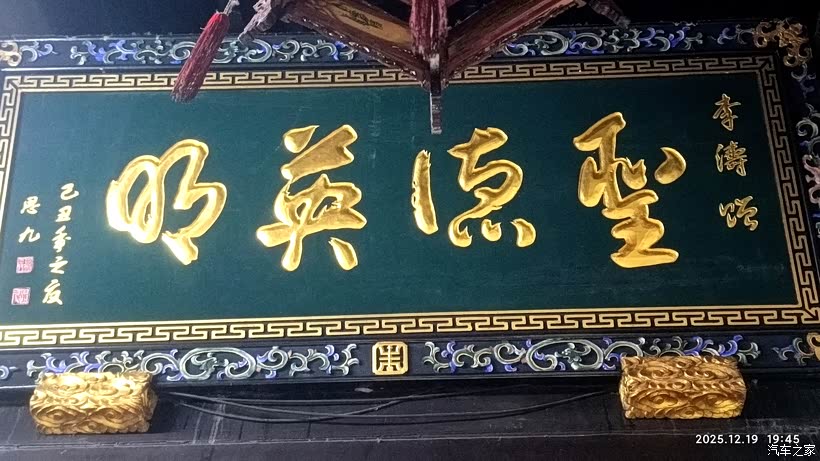 李濤赠
聖德英明
己丑年之夏
恩九
2025.12.19 19:45
汽车之家